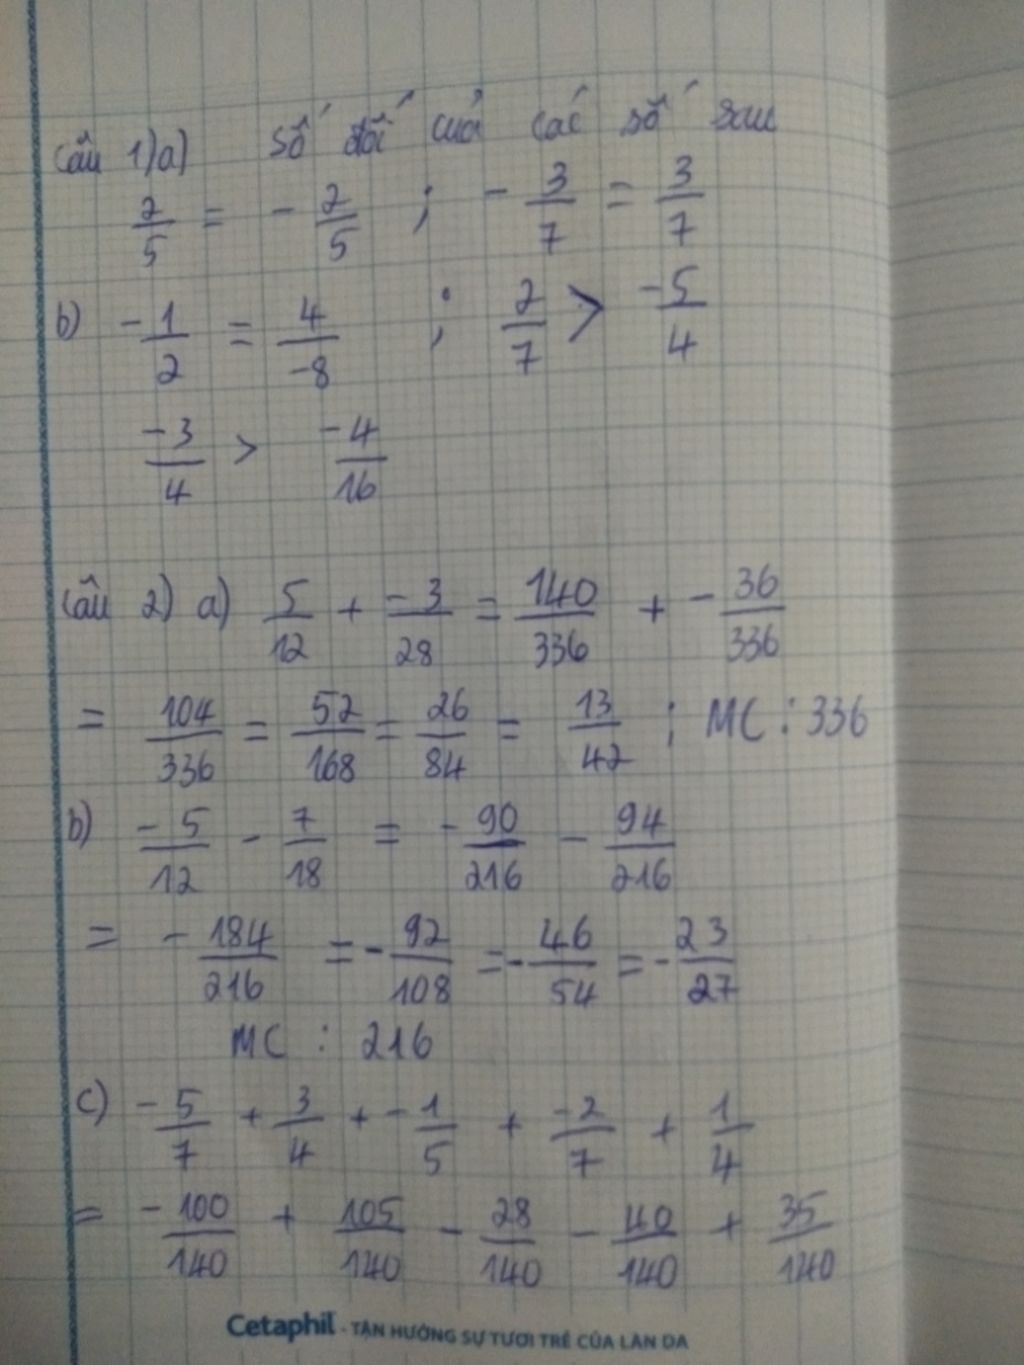 Câu 1)a) số đối của các số sau
2/5 = - 2/5 ; - 3/7 = 3/7
b) - 1/2 = 4/-8 ; 2/7 > -5/4
-3/4 > -4/16
Câu 2) a) 5/12 + -3/28 = 140/336 + - 36/336
= 104/336 = 52/168 = 26/84 = 13/42 ; MC : 336
b) -5/12 - 7/18 = - 90/216 - 94/216
= - 184/216 = - 92/108 = - 46/54 = - 23/27
MC : 216
c) - 5/7 + 3/4 + - 1/5 + -2/7 + 1/4
= - 100/140 + 105/140 - 28/140 - 40/140 + 35/140
Cetaphil - TẬN HƯỞNG SỰ TƯƠI TRẺ CỦA LÀN DA